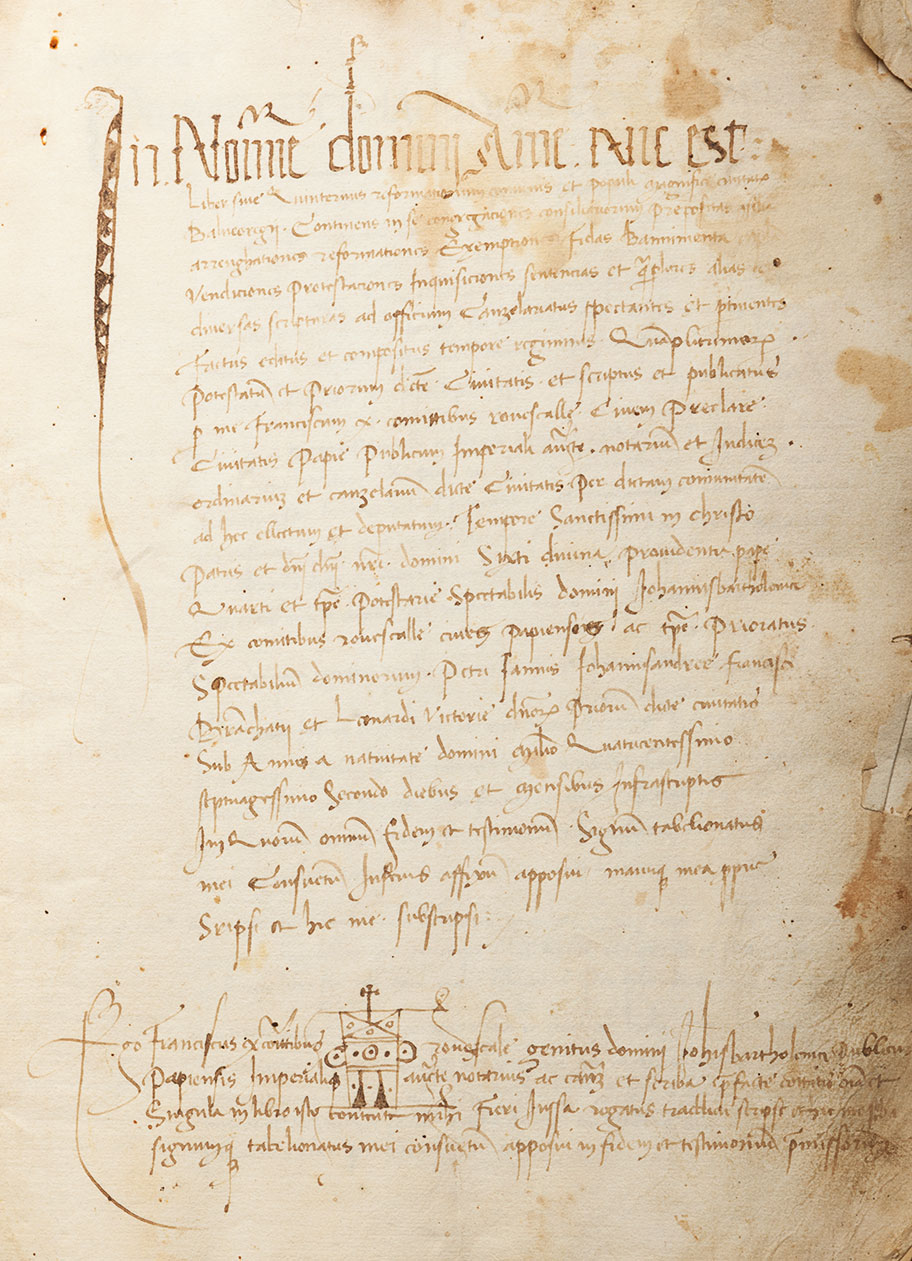 In Noīe domini Ame. Nūc est:
Liber sive Quinternus reformationum comunis et populi civitatis
Balneoregij. Continens in se congregationes consiliariorum
arrenghationes reformationes Exemptiones Fidas Bannimenta
Vendiciones Protestaciones Inquisiciones sentencias et alias
diversas scripturas ad officium Canzelariatus spectantes et ptinentes
Factus editus et compositus tempore regiminis
Potestatū et Priorum dicte Civitatis. et scriptus et publicatus
p me Franciscum ex. comittibus rovescalle Civem Preclare
Civitatis Papie Publicum Imperiali aucte. notariū et Iudicez
ordinariuz et canzelariū dicte Civitatis Per dictam comunitatē
ad hec ellectum et deputatum. Tempore Sanctissimi in christo
Patris et dnj dnj nrj. domini Sixti divina providentia pape
Quarti et tpe. Potestarie Spectabilis domini Johannisbartholomei
Ex comitibus rovescalle civis Papiensis ac tpe. Prioratus
Spectabiliū dominorum. Petri Iannis Johannisandree Francisci
et Leonardi Victorie dnorz Priorū dicte civitatis
Sub Annis a nativitate domini Milłio Quatricentessimo
septuagessimo Secondo diebus et Mensibus Infrascriptis
In Quorū omniū Fidem et testimoniū. Signū tabelionatus
mei Consuetū Inferius affixū apposui manuq mea ppria
Sripsi et hic me subscripsi:
Ego Franciscus ex Comitibus rovescale genitus domini Johisbartholomei Publicus
Papiensis Imperiali aucte notarius ac canz et scriba
Singula in libro isto contenta mihi Fieri Iussa rogatus tradidi scripsi et hic me
signumq tabelionatus mei consuetū apposui in fidem et testimoniū pmissorum